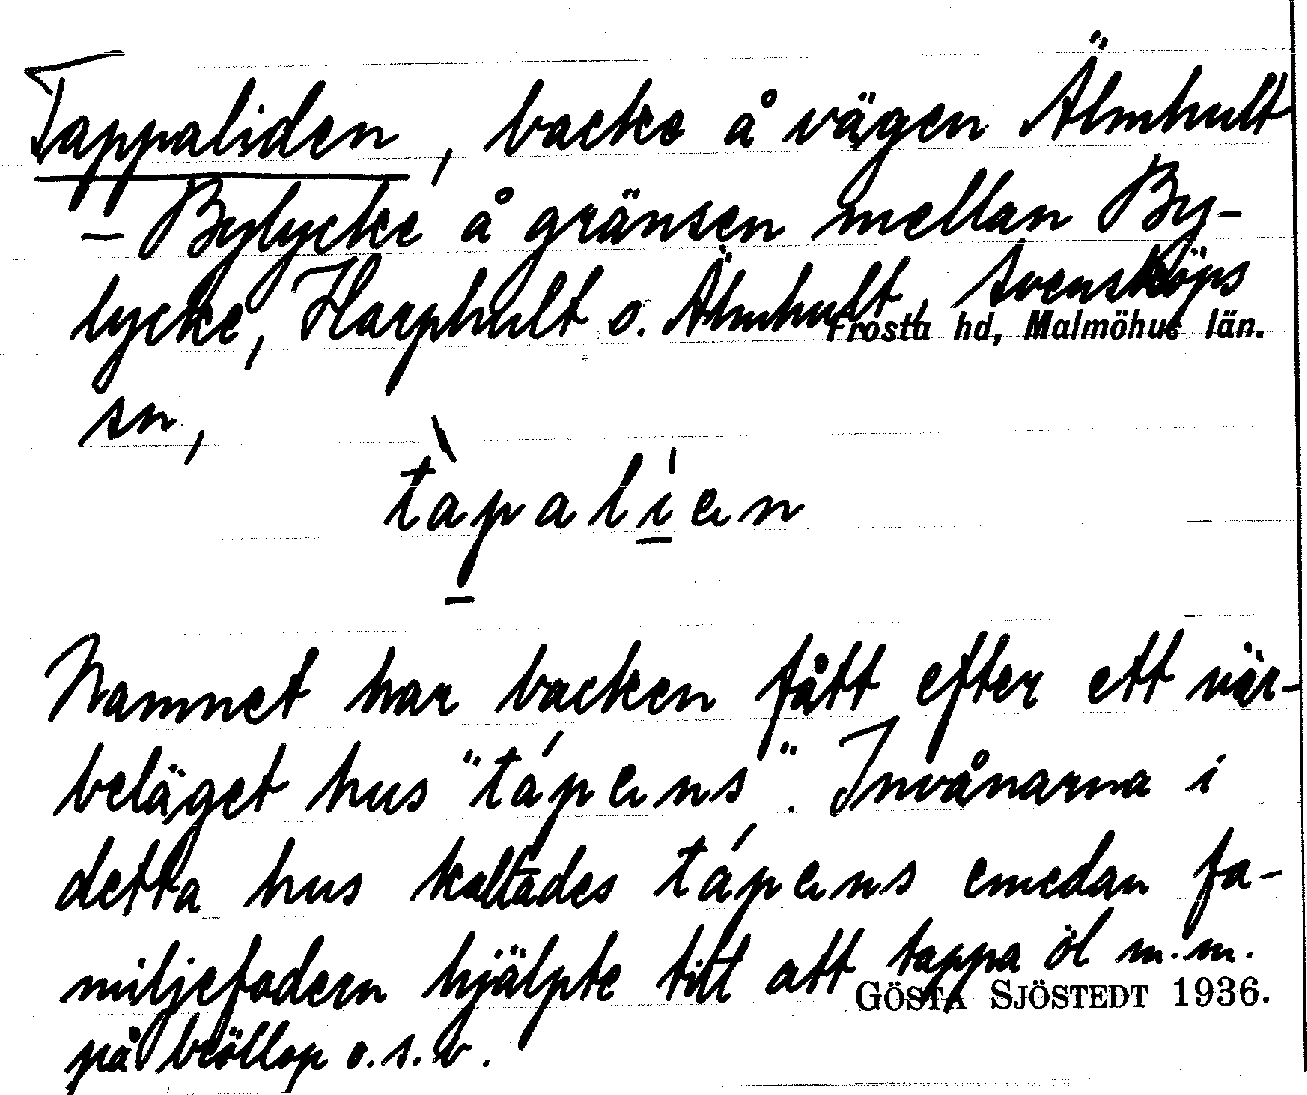 Tappaliden, backe å vägen Älmhult
– Bylycke å gränsen mellan By-
lycke, Harphult o. Älmhult, Svensköps
Frosta hd, Malmöhus län.
sn,
tàpalíen
Namnet har backen fått efter ett när-
beläget hus "tápens". Invånarna i
detta hus kallades tápens emedan fa-
miljefadern hjälpte till att tappa öl m.m.
GÖSTA SJÖSTEDT 1936.
på bröllop o.s.v.